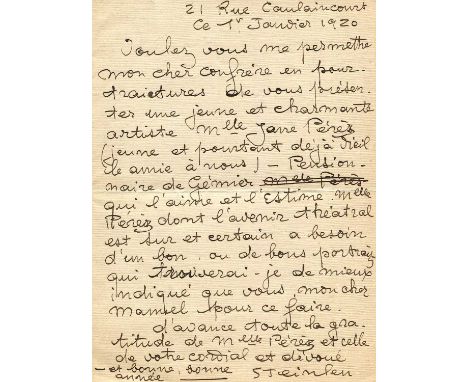 21 Rue Caulaincourt
Ce 1er Janvier 1920
Voulez vous me permettre
mon cher confrère en pour-
traictures de vous présen-
ter une jeune et charmante
artiste Melle Jane Pérèz
(jeune et pourtant déjà vieil
le amie à nous) - Pension-
naire de Gémier Melle Pérèz
qui l'aime et l'estime. Melle
Pérèz dont l'avenir théatral
est sur et certain a besoin
d'un bon, ou de bons portraits
qui trouverai-je de mieux
indiqué que vous mon cher
Manuel pour ce faire.
d'avance toute la gra-
titude de Melle Pérèz et celle
de votre cordial et dévoué
- et bonne, bonne Steinlen
année